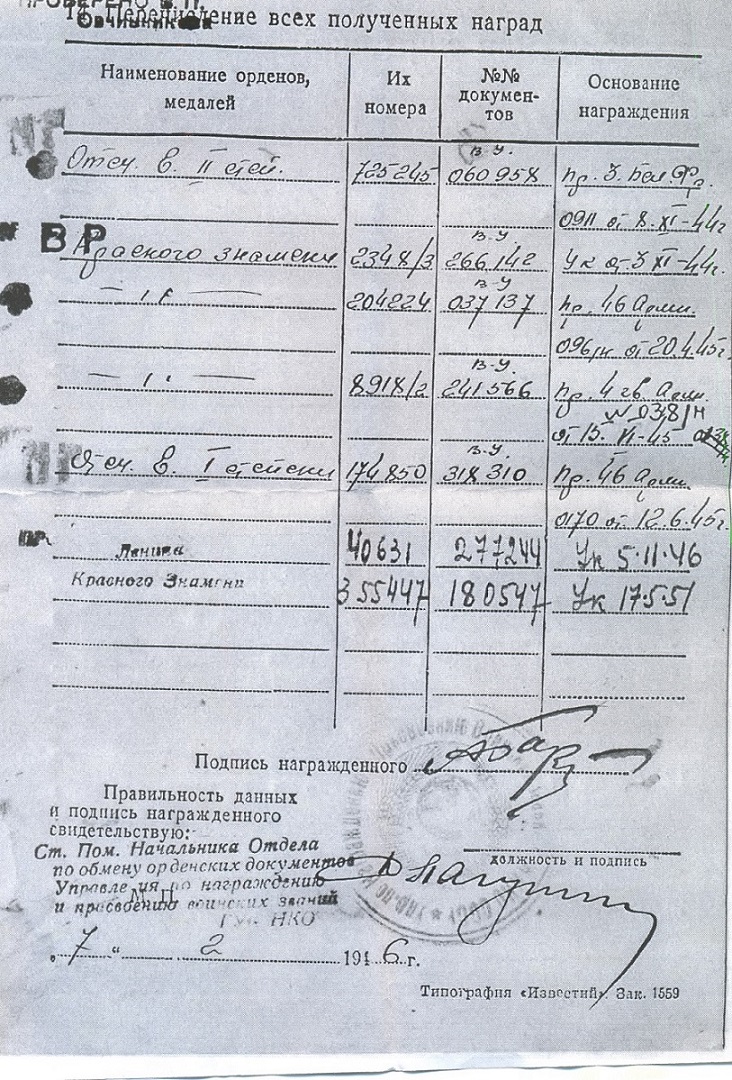 ПРОВЕРЕНО В.П.
Овчинников
14. Перечисление всех полученных наград
Наименование орденов, медалей
Их номера
№№ документов
Основание награждения
в.у.
Отеч. в. II степ. 725245 060958 пр. 3 Бел. Фр.
0911 от 8.XI-44г
ВР
в.у.
Красного знамени 2348/3 266142 Ук от 3 XI-44г.
в.у.
— " — 204224 037137 пр. 46 Арми.
096/н от 20.4.45г.
в.у.
— " — 8918/2 241566 пр. 4 гв. Арм.
N 038/н
в.у.
Отеч. в. I степени 174850 318310 пр. 46 Арми
0170 от 12.6.45г.
Ленина 40631 277244 Ук 5·11·46
Красного Знамени 355447 180547 Ук 17.5.51
Подпись награжденного
Правильность данных
и подпись награжденного
свидетельствую:
Ст. Пом. Начальника Отдела
по обмену орденских документов
Управления по награждению
и присвоению воинских званий
ГУК НКО
должность и подпись
М. П.
„ 7 “ 2 1946 г.
Типография «Известий». Зак. 1559